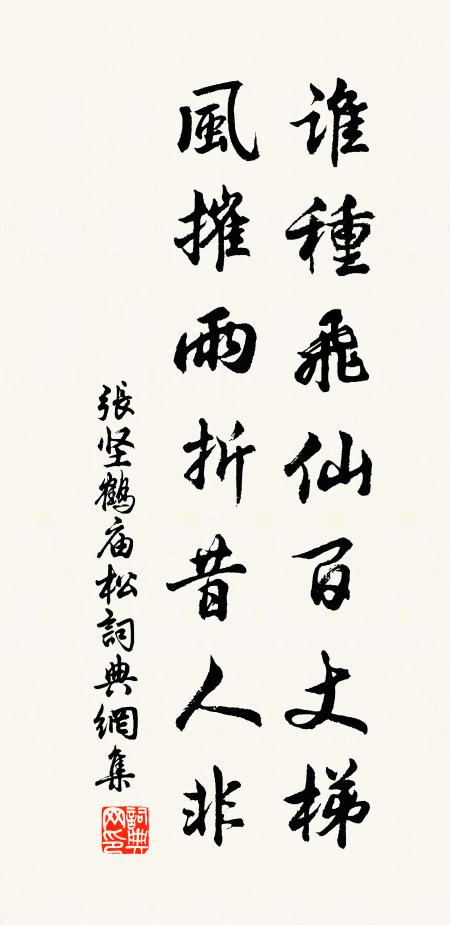 誰種飛仙百丈梯
風摧雨折昔人非
張坚鶴庙松詞典網集
詞典网印